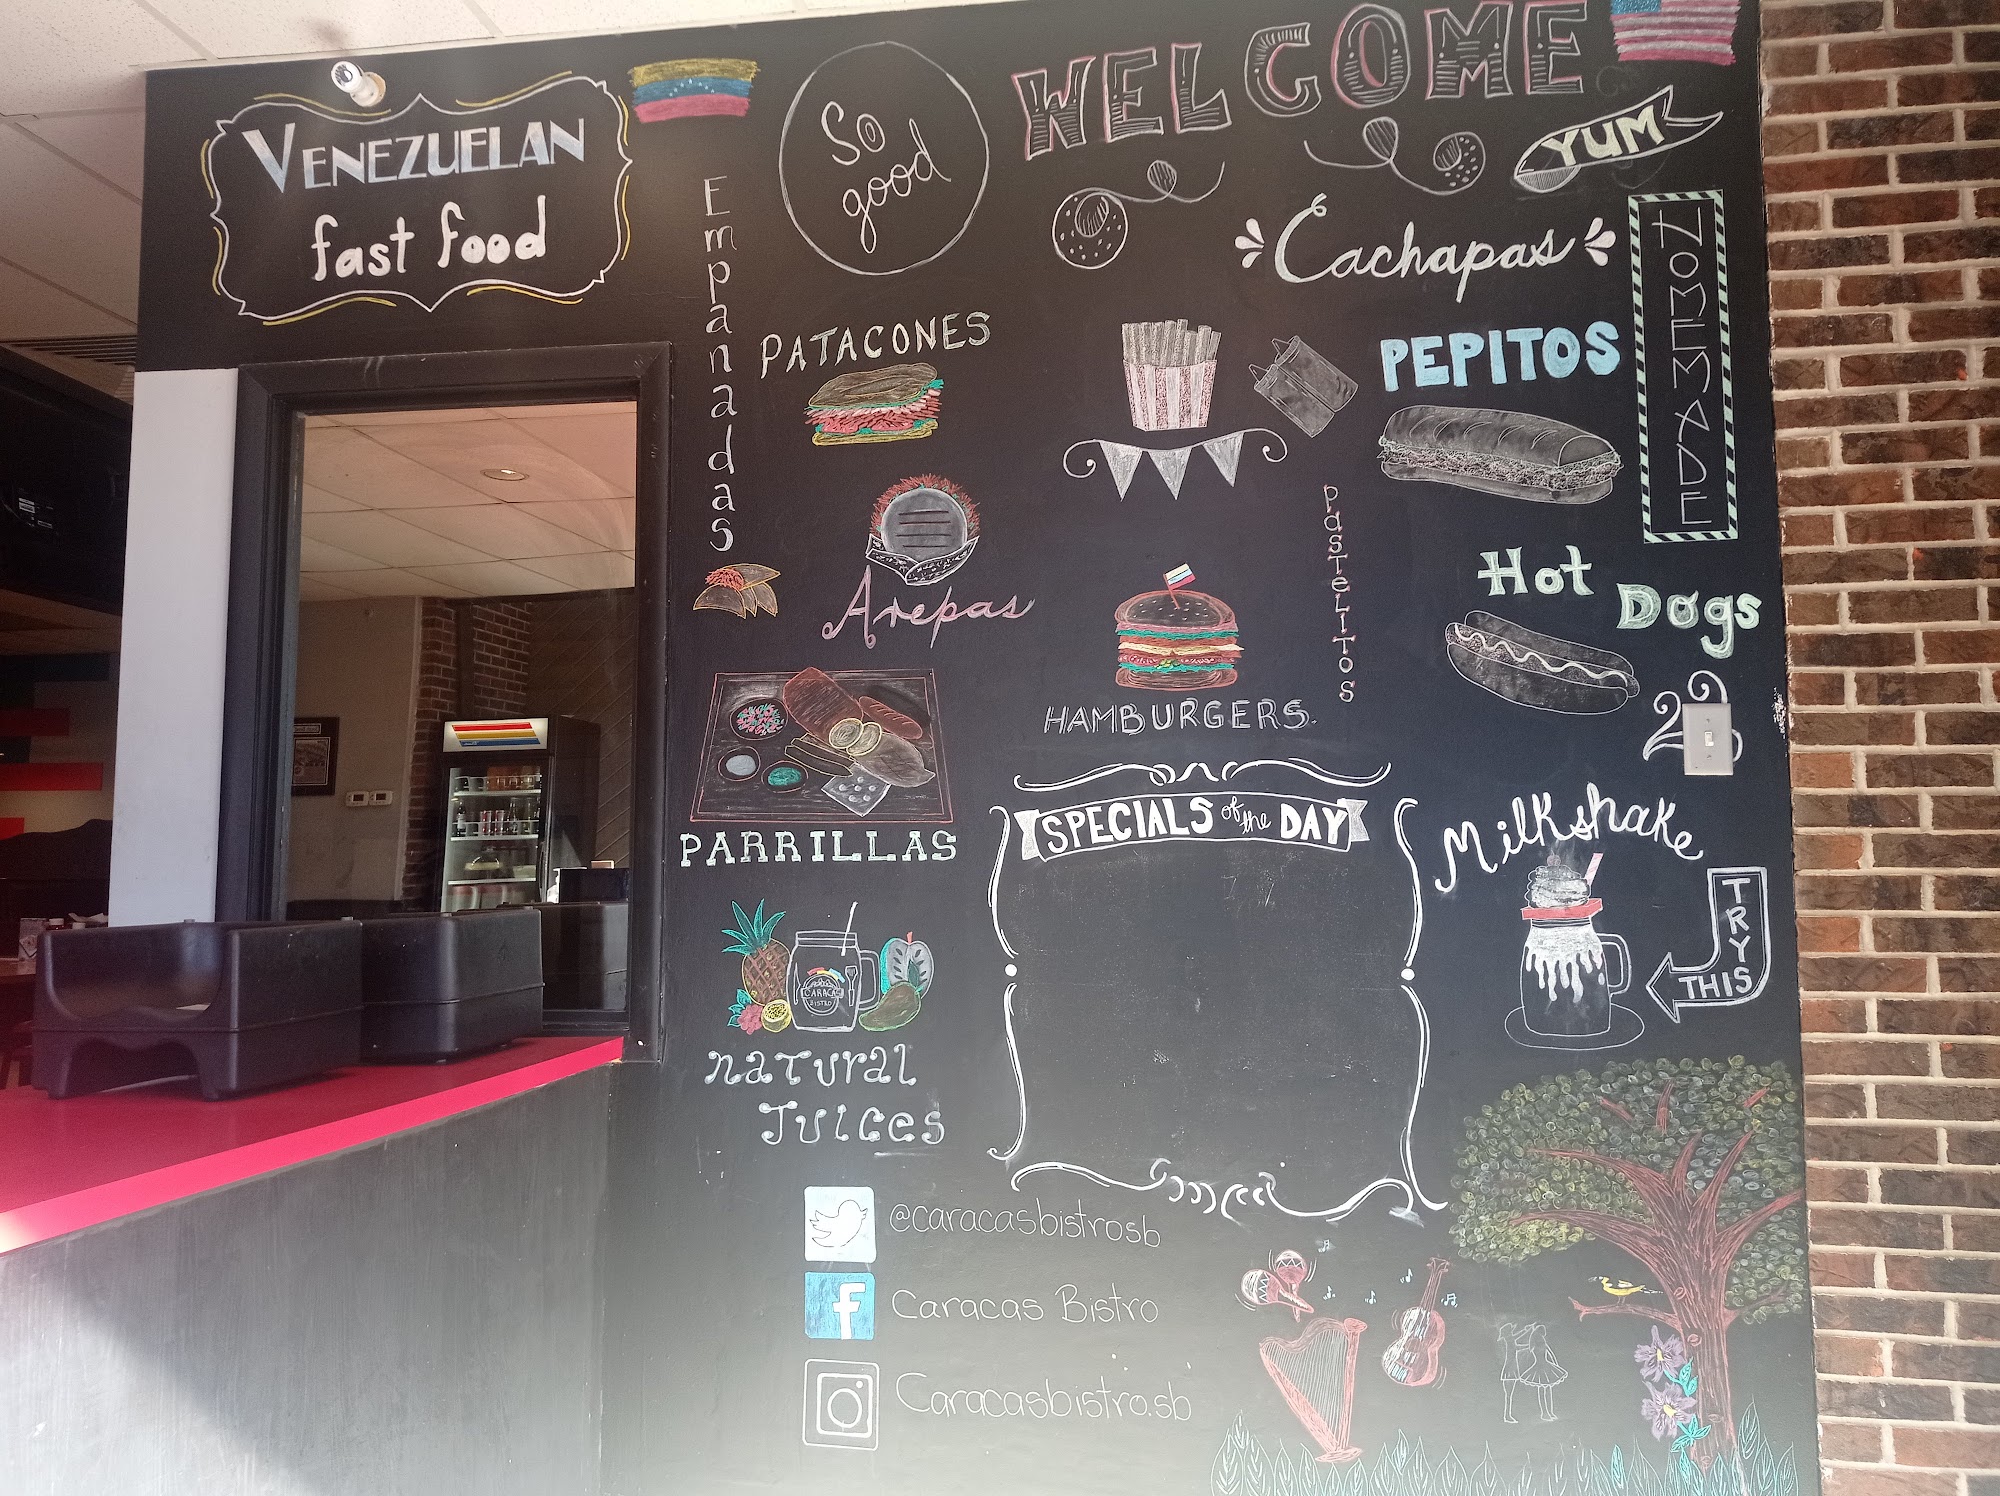 VENEZUELAN
fast food
So
good
WELCOME
YUM
Empanadas
Cachapas
HOMEMADE
PATACONES
PEPITOS
Arepas
PasTeLiTos
Hot
Dogs
HAMBURGERS.
PARRILLAS
SPECIALS of the DAY
Milkshake
TRY
THIS
CARACAS
BISTRO
naTural
Juices
@caracasbistrosb
f
Caracas Bistro
Caracasbistro.sb